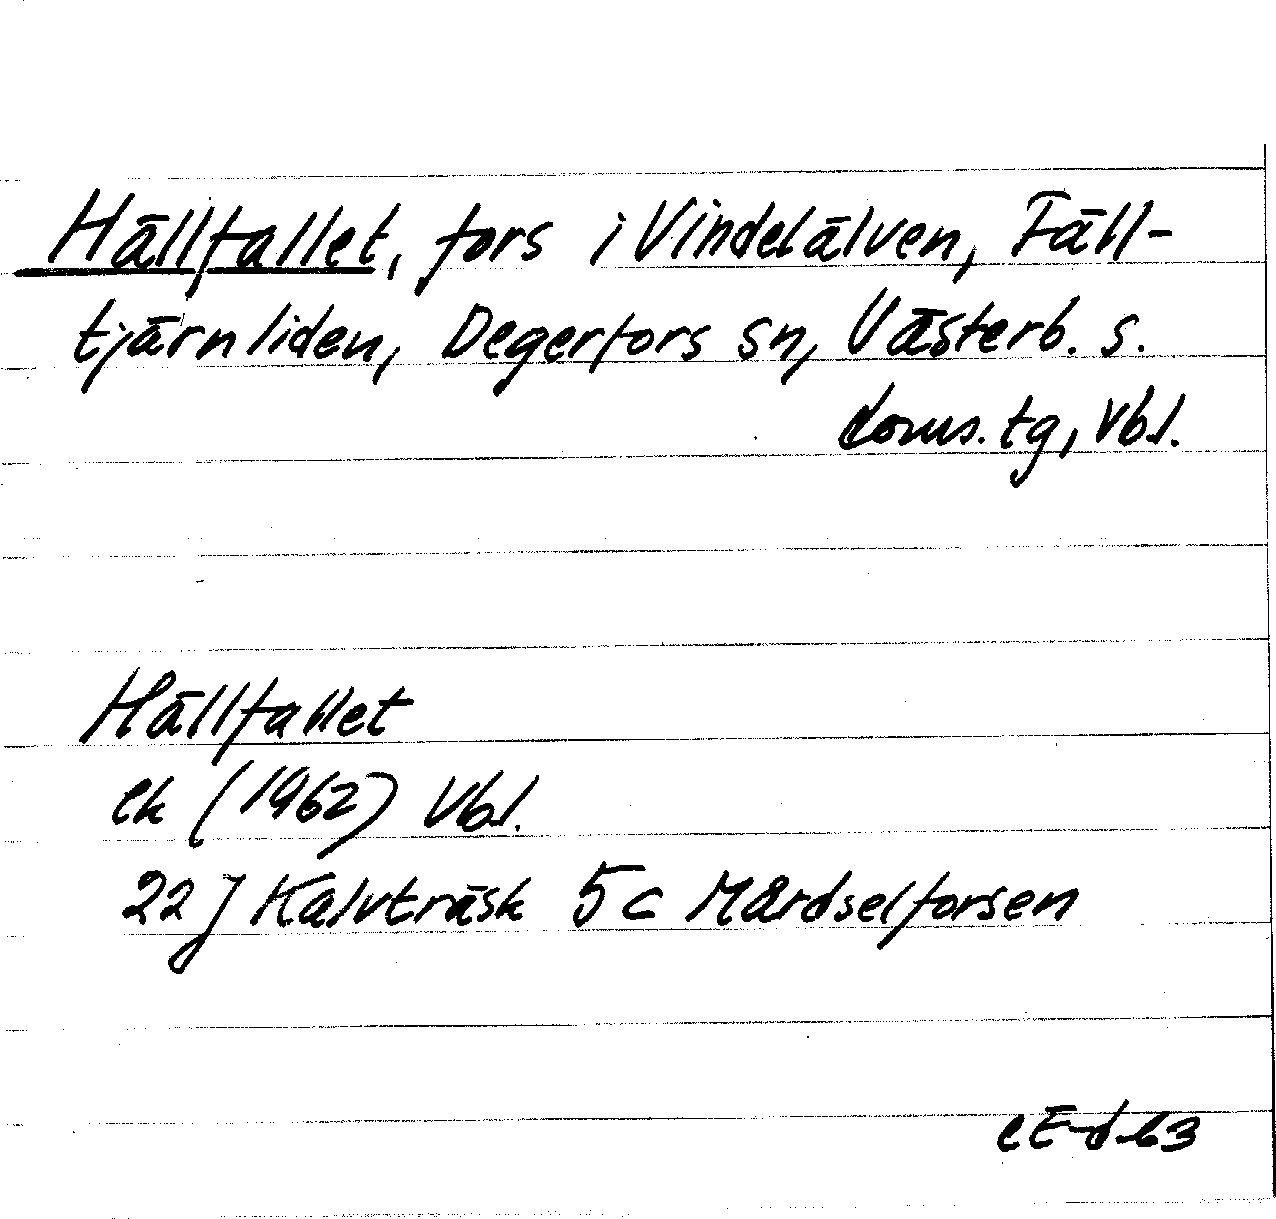 Hällfallet, fors i Vindelälven, Fäll-
tjärnliden, Degerfors sn, Västerb. s.
doms. tg, Vbl.
Hällfallet
ek (1962) Vbl.
22 J Kalvträsk 5c Mårdselforsen